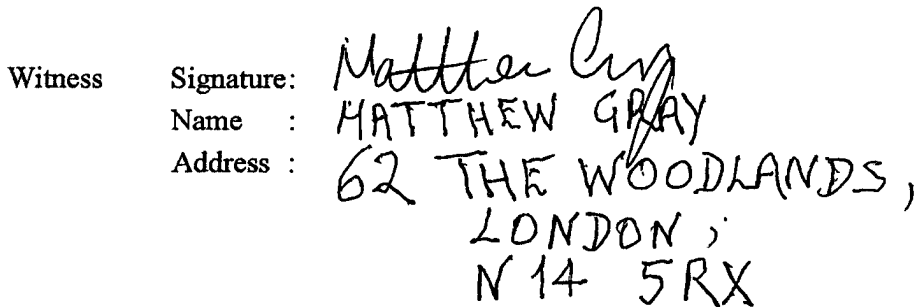 Witness Signature: Matthew Gray
Name : MATTHEW GRAY
Address : 62 THE WOODLANDS,
LONDON,
N14 5RX